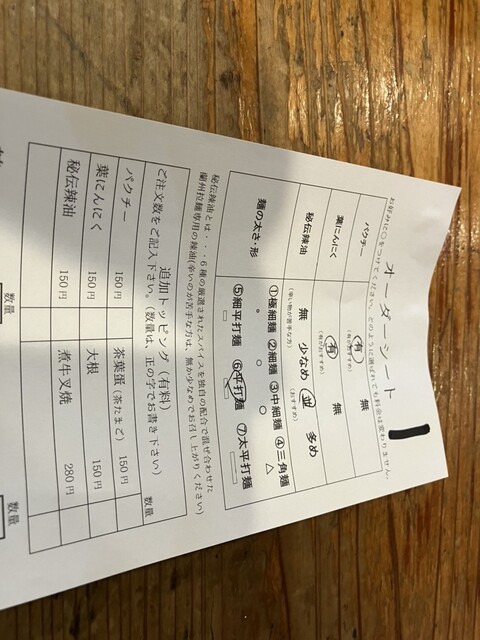 オーダーシート
お好みに○をつけてください。どのように選ばれても料金は変わりません。
パクチー 有 無
(有がおすすめ)
葉にんにく 有 無
(有がおすすめ)
秘伝辣油 無 少なめ 並 多め
(辛い物が苦手な方) (おすすめ)
麺の太さ・形 ①極細麺 ②細麺 ③中細麺 ④三角麺
⑤細平打麺 ⑥平打麺 ⑦太平打麺
秘伝辣油とは・・・6種の厳選されたスパイスを独自の配合で混ぜ合わせた
蘭州拉麺専用の辣油(辛いのが苦手な方は、無か少なめでお召し上がりください)
追加トッピング(有料)
ご注文数をご記入下さい。(数量は、正の字でお書き下さい)
数量 数量
パクチー 150円 茶葉蛋(茶たまご) 150円
葉にんにく 150円 大根 150円
秘伝辣油 150円 煮牛叉焼 280円
数量 数量